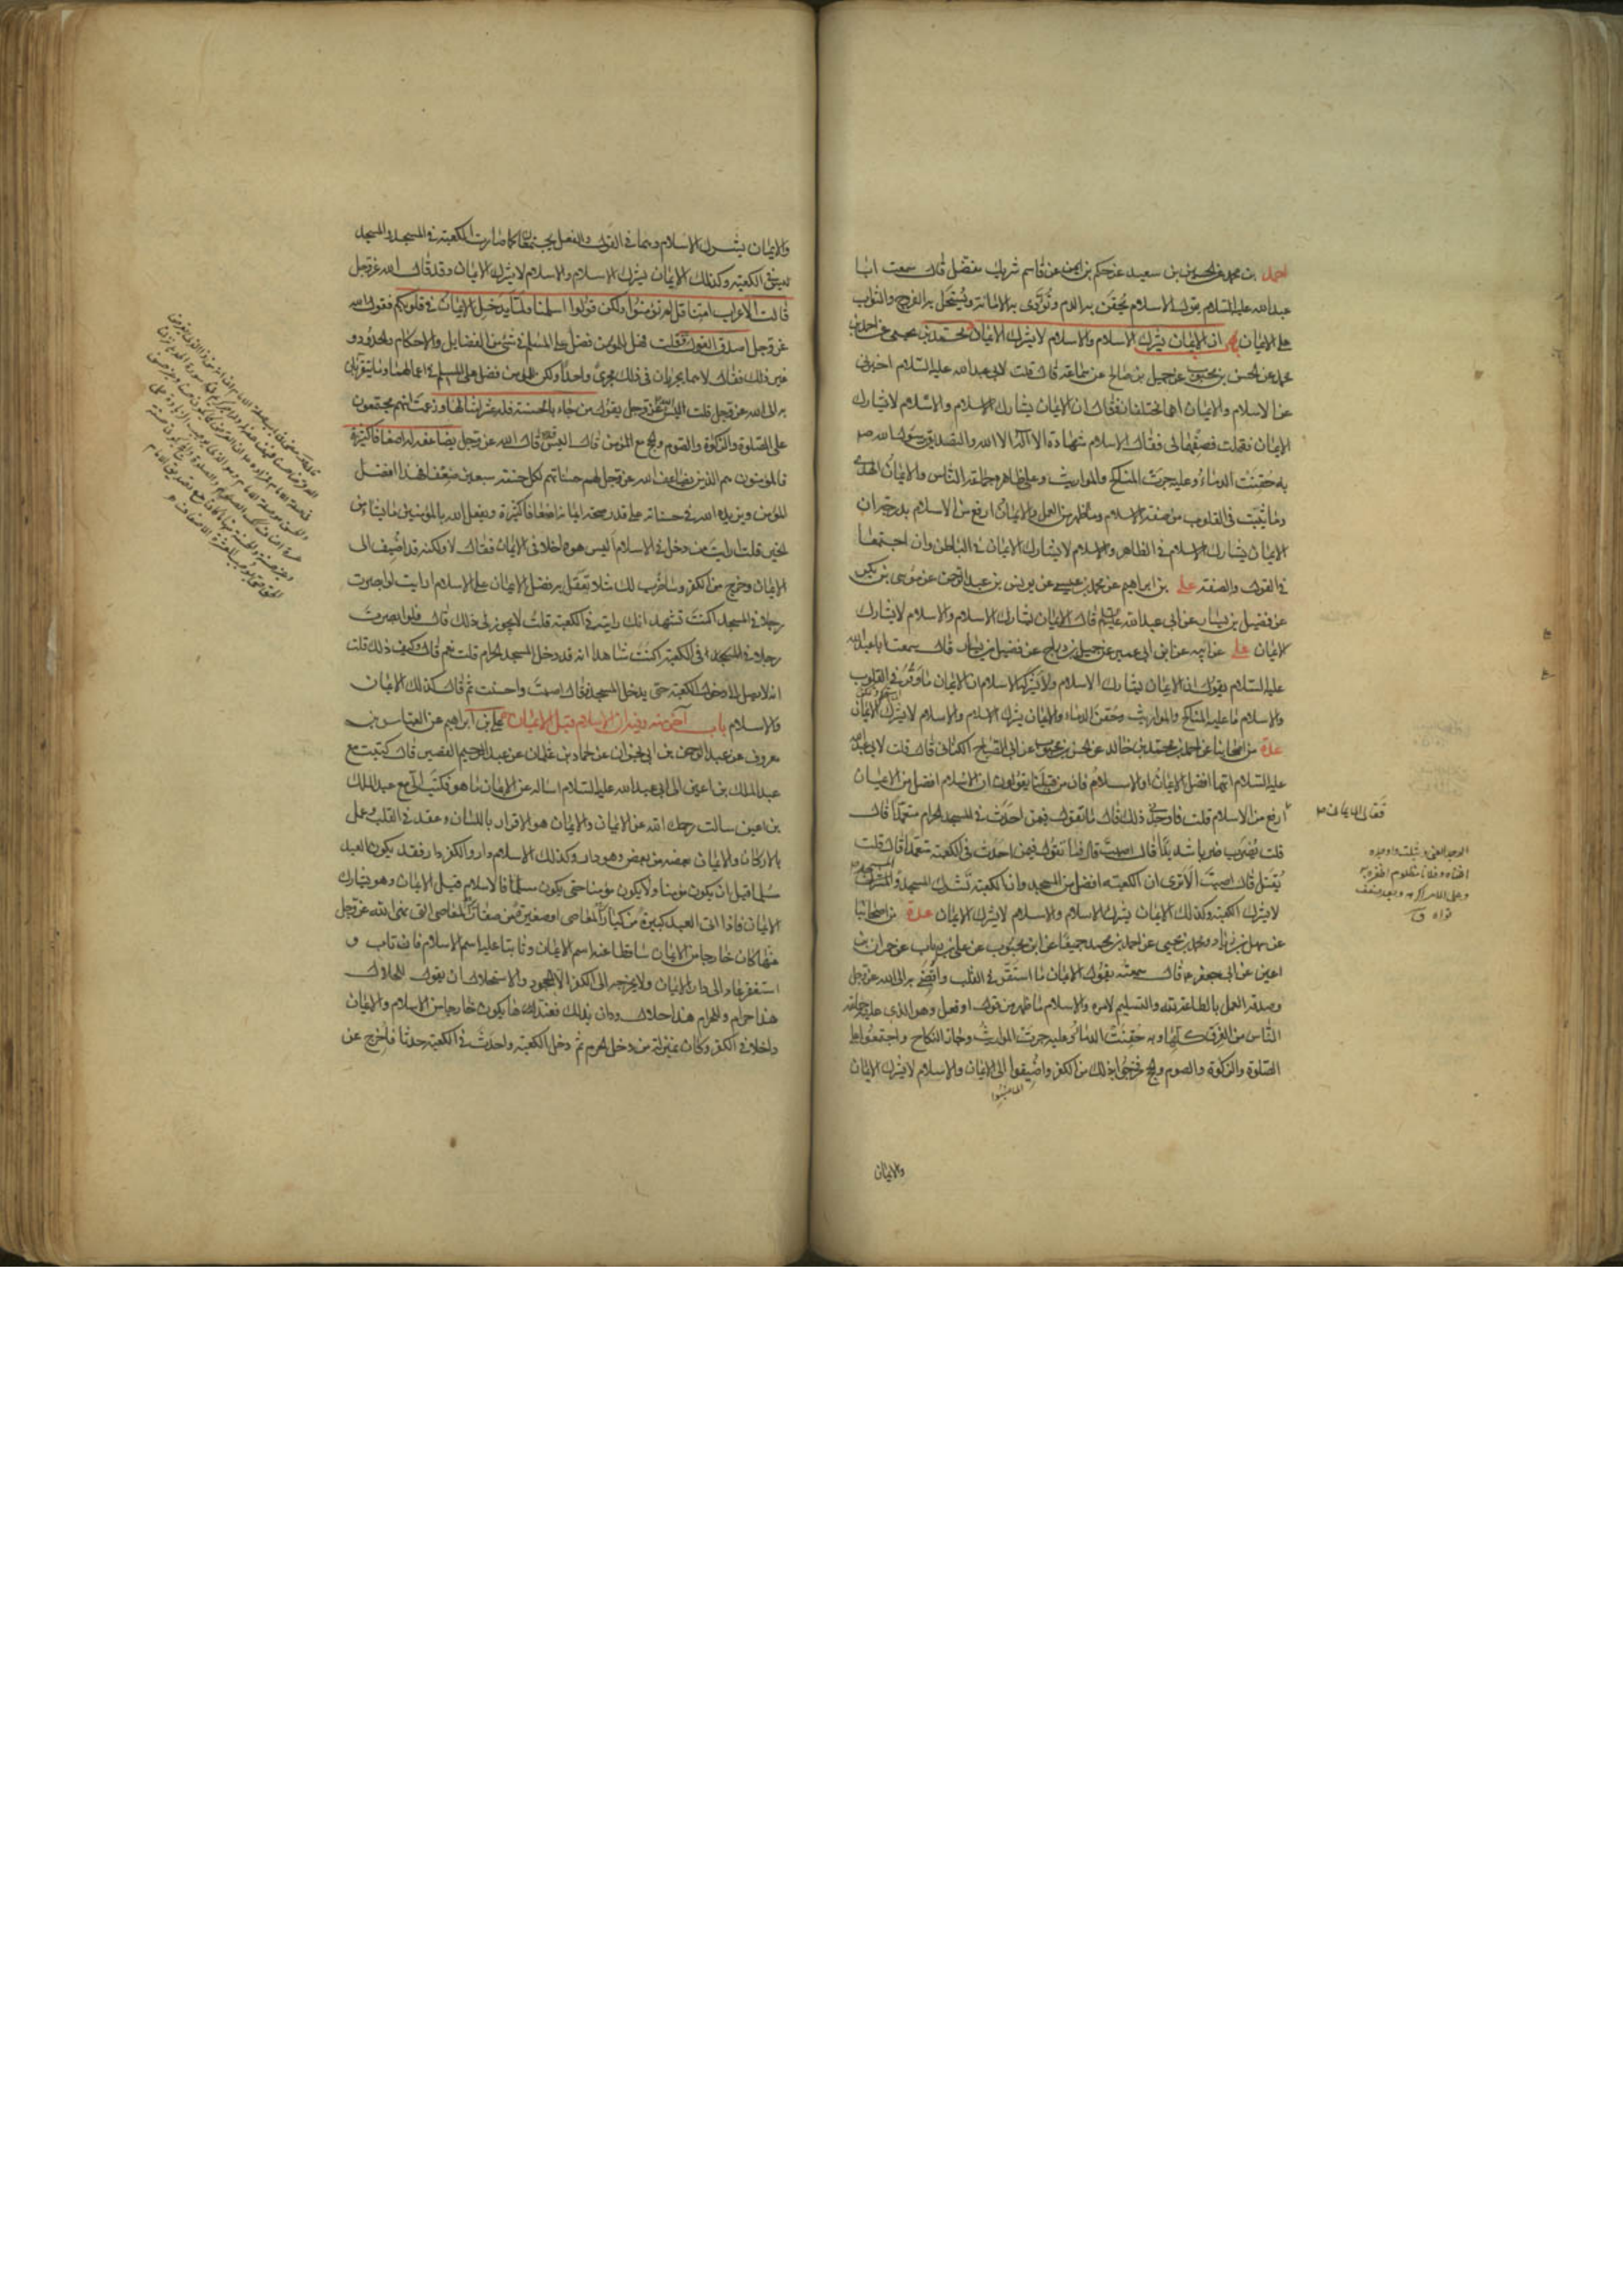 احمد بن محمد عن الحسين بن سعيد عن حكم بن ايمن عن قاسم شريك مفضل قال سمعت ابا
عبد الله عليه السلام يقول الاسلام يحقن به الدم وتؤدى به الامانة ويستحل به الفرج والثواب
على الايمان ان الايمان يشرك الاسلام والاسلام لا يشرك الايمان محمد بن يحيى عن احمد بن
محمد عن الحسن بن محبوب عن جميل بن صالح عن سماعة قال قلت لابي عبد الله عليه السلام اخبرني
عن الاسلام والايمان اهما مختلفان فقال ان الايمان يشارك الاسلام والاسلام لا يشارك
الايمان فقلت فصفهما لي فقال الاسلام شهادة ان لا اله الا الله والتصديق برسول الله ص
به حقنت الدماء وعليه جرت المناكح والمواريث وعلى ظاهره جماعة الناس والايمان الهدى
وما يثبت في القلوب من صفة الاسلام وما ظهر من العمل والايمان ارفع من الاسلام بدرجة ان
الايمان يشارك الاسلام في الظاهر والاسلام لا يشارك الايمان في الباطن وان اجتمعا
في القول والصفة علي بن ابراهيم عن محمد بن عيسى عن يونس بن عبد الرحمن عن موسى بن بكر
عن فضيل بن يسار عن ابي عبد الله عليه السلم قال الايمان يشارك الاسلام والاسلام لا يشارك
الايمان علي عن ابيه عن ابن ابي عمير عن جميل بن دراج عن فضيل بن يسار قال سمعت ابا عبد الله
عليه السلام يقول ان الايمان يشارك الاسلام ولا يشركه الاسلام ان الايمان ما وقر في القلوب
والاسلام ما عليه المناكح والمواريث وحقن الدماء والايمان يشرك الاسلام والاسلام لا يشرك الايمان
عدة من اصحابنا عن احمد بن محمد بن خالد عن الحسن بن محبوب عن ابي الصباح الكناني قال قلت لابي عبد الله
عليه السلام ايهما افضل الايمان او الاسلام فان من قبلنا يقولون ان الاسلام افضل من الايمان
ارفع من الاسلام قلت فاوجدني ذلك قال ما تقول فيمن احدث في المسجد الحرام متعمدا قال
فقال الايمان
قلت يضرب ضربا شديدا قال اصبت قال فما تقول فيمن احدث في الكعبة متعمدا قال قلت
يقتل قال اصبت الا ترى ان الكعبة افضل من المسجد وان الكعبة تشرك المسجد والمسجد
لا يشرك الكعبة وكذلك الايمان يشرك الاسلام والاسلام لا يشرك الايمان عدة من اصحابنا
عن سهل بن زياد ومحمد بن يحيى عن احمد بن محمد جميعا عن ابن محبوب عن علي بن رياب عن حمران بن
اعين عن ابي جعفر ع قال سمعته يقول الايمان ما استقر في القلب وافضى به الى الله عز وجل
وصدقه العمل بالطاعة لله والتسليم لامره والاسلام ما ظهر من قول او فعل وهو الذي عليه جماعة
الناس من الفرق كلها وبه حقنت الدماء وعليه جرت المواريث وجاز النكاح واجتمعوا على
الصلوة والزكوة والصوم والحج فخرجوا بذلك من الكفر واضيفوا الى الايمان والاسلام لا يشرك الايمان
والايمان
والايمان يشرك الاسلام وهما في القول والفعل يجتمعان كما صارت الكعبة في المسجد والمسجد
ليس في الكعبة وكذلك الايمان يشرك الاسلام والاسلام لا يشرك الايمان وقد قال الله عز وجل
قالت الاعراب امنا قل لم تؤمنوا ولكن قولوا اسلمنا ولما يدخل الايمان في قلوبكم فقول الله
عز وجل اصدق القول قلت فهل للمؤمن فضل على المسلم في شيء من الفضايل والاحكام والحدود و
غير ذلك فقال لا هما يجريان في ذلك مجرى واحدا ولكن للمؤمن فضل على المسلم في اعمالهما وما يتقربان
به الى الله عز وجل قلت اليس الله عز وجل يقول من جاء بالحسنة فله عشر امثالها وزعمت انهم مجتمعون
على الصلوة والزكوة والصوم والحج مع المؤمن قال اليس قد قال الله عز وجل يضاعفه له اضعافا كثيرة
فالمؤمنون هم الذين يضاعف الله عز وجل لهم حسناتهم لكل حسنة سبعين ضعفا فهذا افضل
المؤمن ويزيده الله في حسناته على قدر صحة ايمانه اضعافا كثيرة ويفعل الله بالمؤمنين ما يشاء من
الخير قلت ارايت من دخل في الاسلام اليس هو داخلا في الايمان فقال لا ولكنه قد اضيف الى
الايمان وخرج من الكفر وساضرب لك مثلا تعقل به فضل الايمان على الاسلام ارايت لو ابصرت
رجلا في المسجد اكنت تشهد انك رايته في الكعبة قلت لا يجوز لي ذلك قال فلو ابصرت
رجلا في الكعبة اكنت شاهدا انه قد دخل المسجد الحرام قلت نعم قال وكيف ذلك قلت
انه لا يصل الى دخول الكعبة حتى يدخل المسجد فقال اصبت واحسنت ثم قال كذلك الايمان
والاسلام باب آخر منه وفيه ان الاسلام قبل الايمان علي بن ابراهيم عن العباس بن
معروف عن عبد الرحمن بن ابي نجران عن حماد بن عثمان عن عبد الرحيم القصير قال كتبت مع
عبد الملك بن اعين الى ابي عبد الله عليه السلام اساله عن الايمان ما هو فكتب الي مع عبد الملك
بن اعين سالت رحمك الله عن الايمان والايمان هو الاقرار باللسان وعقد في القلب وعمل
بالاركان والايمان بعضه من بعض وهو دار وكذلك الاسلام دار والكفر دار فقد يكون العبد
مسلما قبل ان يكون مؤمنا ولا يكون مؤمنا حتى يكون مسلما فالاسلام قبل الايمان وهو يشارك
الايمان فاذا اتى العبد كبيرة من كباير المعاصي او صغيرة من صغاير المعاصي التي نهى الله عز وجل
عنها كان خارجا من الايمان ساقطا عنه اسم الايمان وثابتا عليه اسم الاسلام فان تاب و
استغفر عاد الى دار الايمان ولا يخرجه الى الكفر الا الجحود والاستحلال ان يقول للحلال
هذا حرام وللحرام هذا حلال ودان بذلك فعندها يكون خارجا من الاسلام والايمان
داخلا في الكفر وكان بمنزلة من دخل الحرم ثم دخل الكعبة واحدث في الكعبة حدثا فاخرج عن